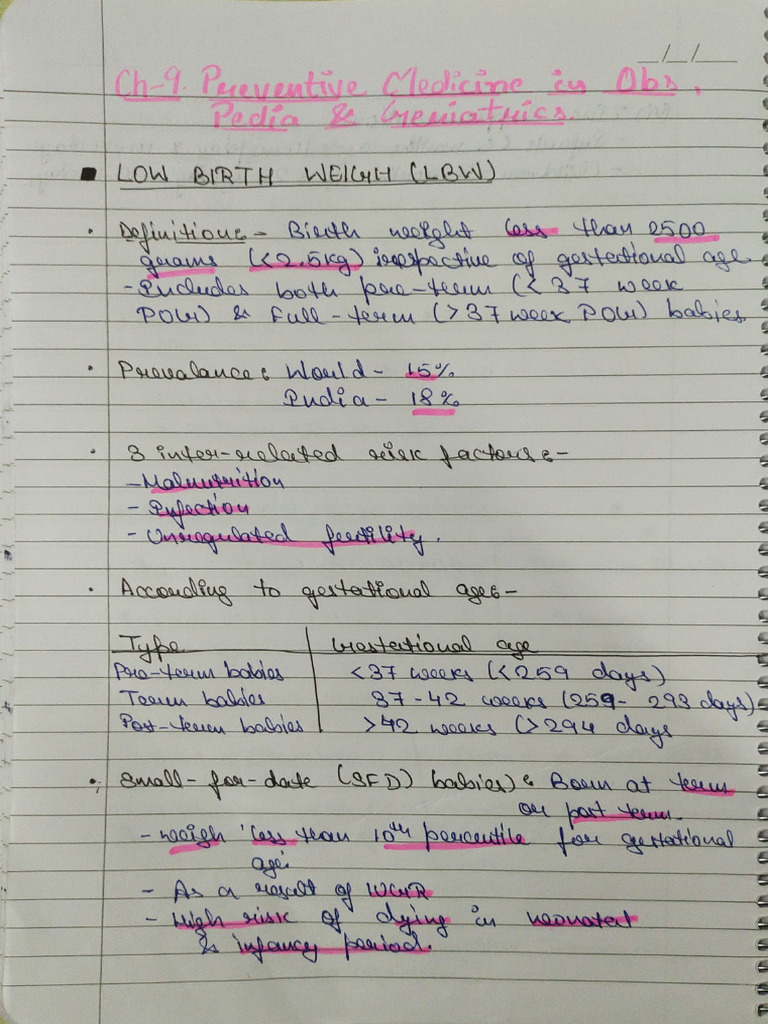 __/__/____
Ch-9. Preventive Medicine in Obs,
Pedia & Geriatrics.
■ LOW BIRTH WEIGH (LBW)
• Definition:- Birth weight less than 2500
grams (<2.5kg) irrespective of gestational age.
- Includes both pre-term (<37 week
POG) & Full-term (>37 week POG) babies.
• Prevalance: World - 15%
India - 18%
• 3 inter-related risk factors:-
- Malnutrition
- Infection
- Unregulated fertility.
• According to gestational age:-
Type | Gestational age
Pre-term babies | <37 weeks (<259 days)
Term babies | 37-42 weeks (259-293 days)
Post-term babies | >42 weeks (>294 days
• Small-for-date (SFD) babies): Born at term
or post term.
- weigh less than 10th percentile for gestational
age.
- As a result of IUGR
- High risk of dying in neonatal
& infancy period.